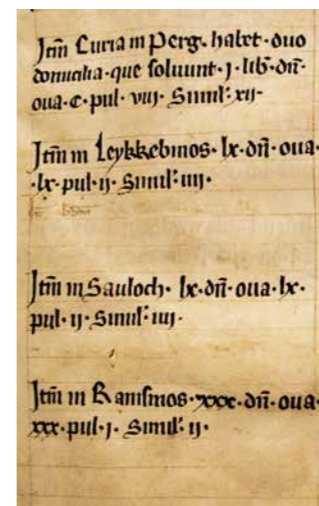 Itm̄ Curia in Perg. habet · duo
domicilia · que soluunt · j · lib᷑ · dn̄ ·
oua · c · pul · viij · Simil᷑ · xij ·
Itm̄ in Leykkebmos · lx · dn̄ · oua ·
· lx · pul · ij · Simil᷑ · iiij ·
Itm̄ in Sauloch · lx · dn̄ · oua · lx ·
pul · ij · Simil᷑ · iiij ·
Itm̄ in Ramsmos · xxx · dn̄ · oua ·
xxx · pul · j · Simil᷑ · ij ·